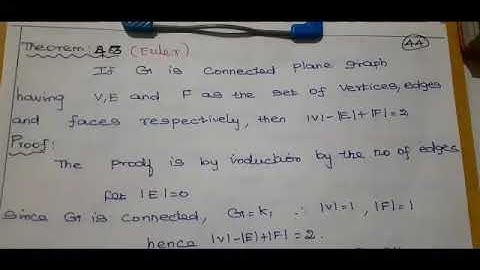 44
Theorem: 4.3 (Euler)
If G is connected plane graph
having V, E and F as the set of vertices, edges
and faces respectively, then |V|-|E|+|F|=2
Proof:
The proof is by induction by the no of edges
for |E|=0
Since G is connected, G=K₁ ∴ |V|=1, |F|=1
hence |V|-|E|+|F|=2.